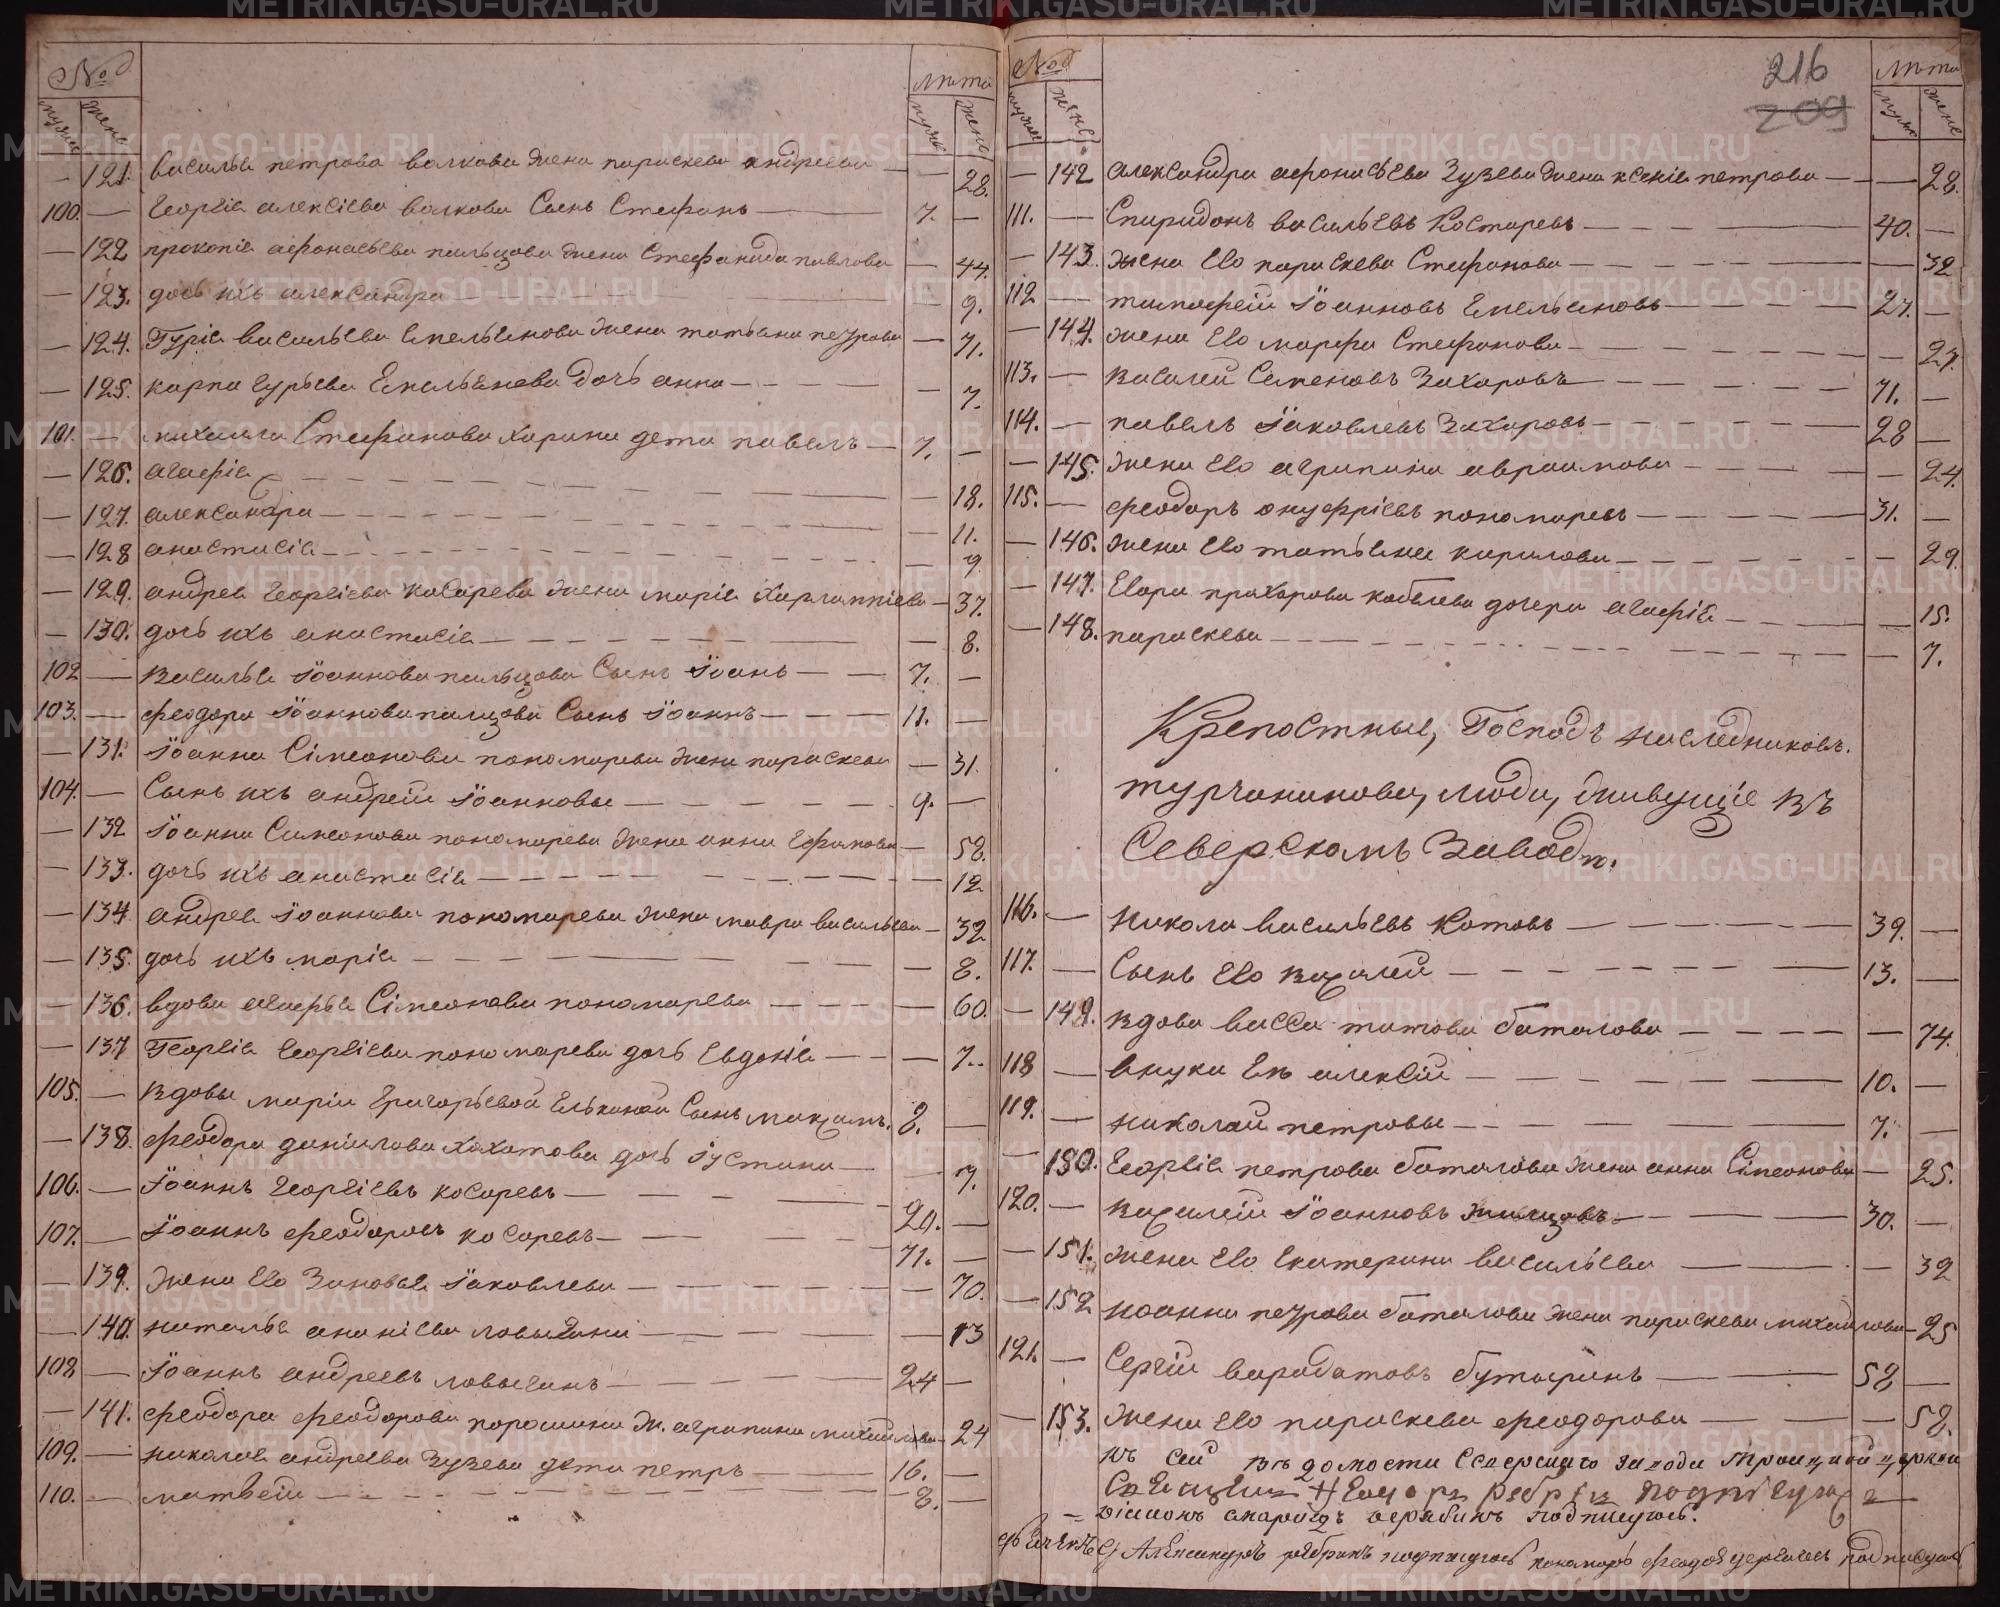 № Лѣта
муж. жен. муж. жен.
— 121. василья петрова волкова жена параскева андреева — — 28.
100. — Георгія алексіева волкова Сынъ Стефанъ — 7. —
— 122 прокопія афонасьева пальцова жена Стефанида павлова — 44.
— 123. дочь ихъ александра — — 9.
— 124. Гурія васильева емельянова жена татьяна петрова — 71.
— 125. карпа гурьева Емельянова дочь анна — — 7.
101. — михаила Стефанова харина дети павелъ — 7. —
— 126. агафія — — 18.
— 127. александра — — 11.
— 128 анастасія — — 9
— 129. андрея Георгіева косарева жена марія Харлампіева — 37.
— 130. дочь ихъ анастасія — — 8.
102 — василья Іоаннова пальцова Сынъ Іоанъ — 7. —
103. — феодора Іоаннова палцова Сынъ Іоаннъ — 11. —
— 131. Іоанна Сімеонова пономарева жена параскева — 31.
104. — Сынъ ихъ андрей Іоанновы — 9. —
— 132 Іоанна Симеонова пономарева жена анна Ефимова — 58.
— 133. дочь ихъ анастасія — — 12
— 134 андрея Іоаннова пономарева жена мавра васильева — 32
— 135. дочь ихъ марія — — 8.
— 136. вдова агафья Сімеонова пономарева — — 60.
— 137 Георгія Георгіева пономарева дочь Евдокія — — 7.
105. — вдовы маріи Григорьевой Елькиной Сынъ максимъ. 8. —
— 138. феодора даніилова хохотова дочь Іустина — — 7.
106. — Іоаннъ Георгіевъ косаревъ — 20. —
107. — Іоаннъ феодоровъ косаревъ — 71. —
— 139. жена Его Зиновья Іаковлева — — 70.
— 140. наталья ананіева ловыгина — — 13
108 — Іоаннъ андреевъ ловыгинъ — 24 —
— 141. феодора феодорова порошина ж. агрипина михаилова — 24
109. — николая андреева Зузева дети петръ — 16. —
110. — матвеій — 8. —
216
209
№ Лѣта
муж. жен. муж. жен.
— 142 александра афонасьева Зузева жена ксенія петрова — — 28.
111. — Спиридонъ васильевъ Костаревъ — 40. —
— 143. жена Его параскева Стефанова — — 32
112 — тимофеій Іоанновъ Емельяновъ — 27. —
— 144. жена Его марфа Стефанова — — 27.
113. — василий Семеновъ Захаровъ — 71. —
114. — павелъ Іаковлевъ Захаровъ — 28 —
— 145. жена Его агрипина авраамова — — 24.
115. — феодоръ онуфріевъ пономаревъ — 31. —
— 146. жена Его татьяна кирилова — — 29.
— 147. Егора прохорова кобелева дочери агафія — — 15.
— 148. параскева — — 7.
Крепостные, Господъ наследниковъ.
турчанинова, люди, живущіе въ
Северскомъ Заводѣ.
116. — Никола васильевъ Котовъ — 39. —
117. — Сынъ Его василий — 13. —
— 149. вдова васса титова баталова — — 74.
118 — внуки Ея алексій — 10. —
119. — николай петровы — 7. —
— 150. Георгія петрова баталова жена анна Симеонова — 25.
120. — василій Іоанновъ — 30. —
— 151. жена Его Екатерина васильева — — 32
— 152 иоанна петрова баталова жена параскева михаилова — 25
121. — Сергій варадатовъ бутыринъ — 58 —
— 153. жена Его параскева феодорова — — 58.
къ сей ведомости Северскаго завода Троицкой церкви
подписуюсь
подписуюсь.
Александръ подписуюсь пономарь подписуюсь